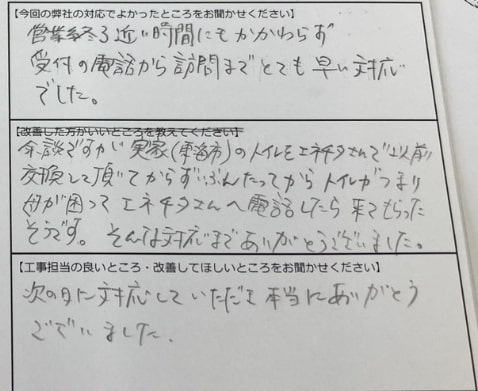 【今回の弊社の対応でよかったところをお聞かせください】
営業終る近い時間にもかかわらず
受付の電話から訪問までとても早い対応
でした。
【改善した方がいいところを教えてください】
余談ですが実家(東海市)のトイレをエネチタさんで以前
交換して頂いてからずいぶんたってからトイレがつまり
母が困ってエネチタさんへ電話したら来てもらった
そうです。そんな対応までありがとうございました。
【工事担当の良いところ・改善してほしいところをお聞かせください】
次の日に対応していただき本当にありがとう
ございました.